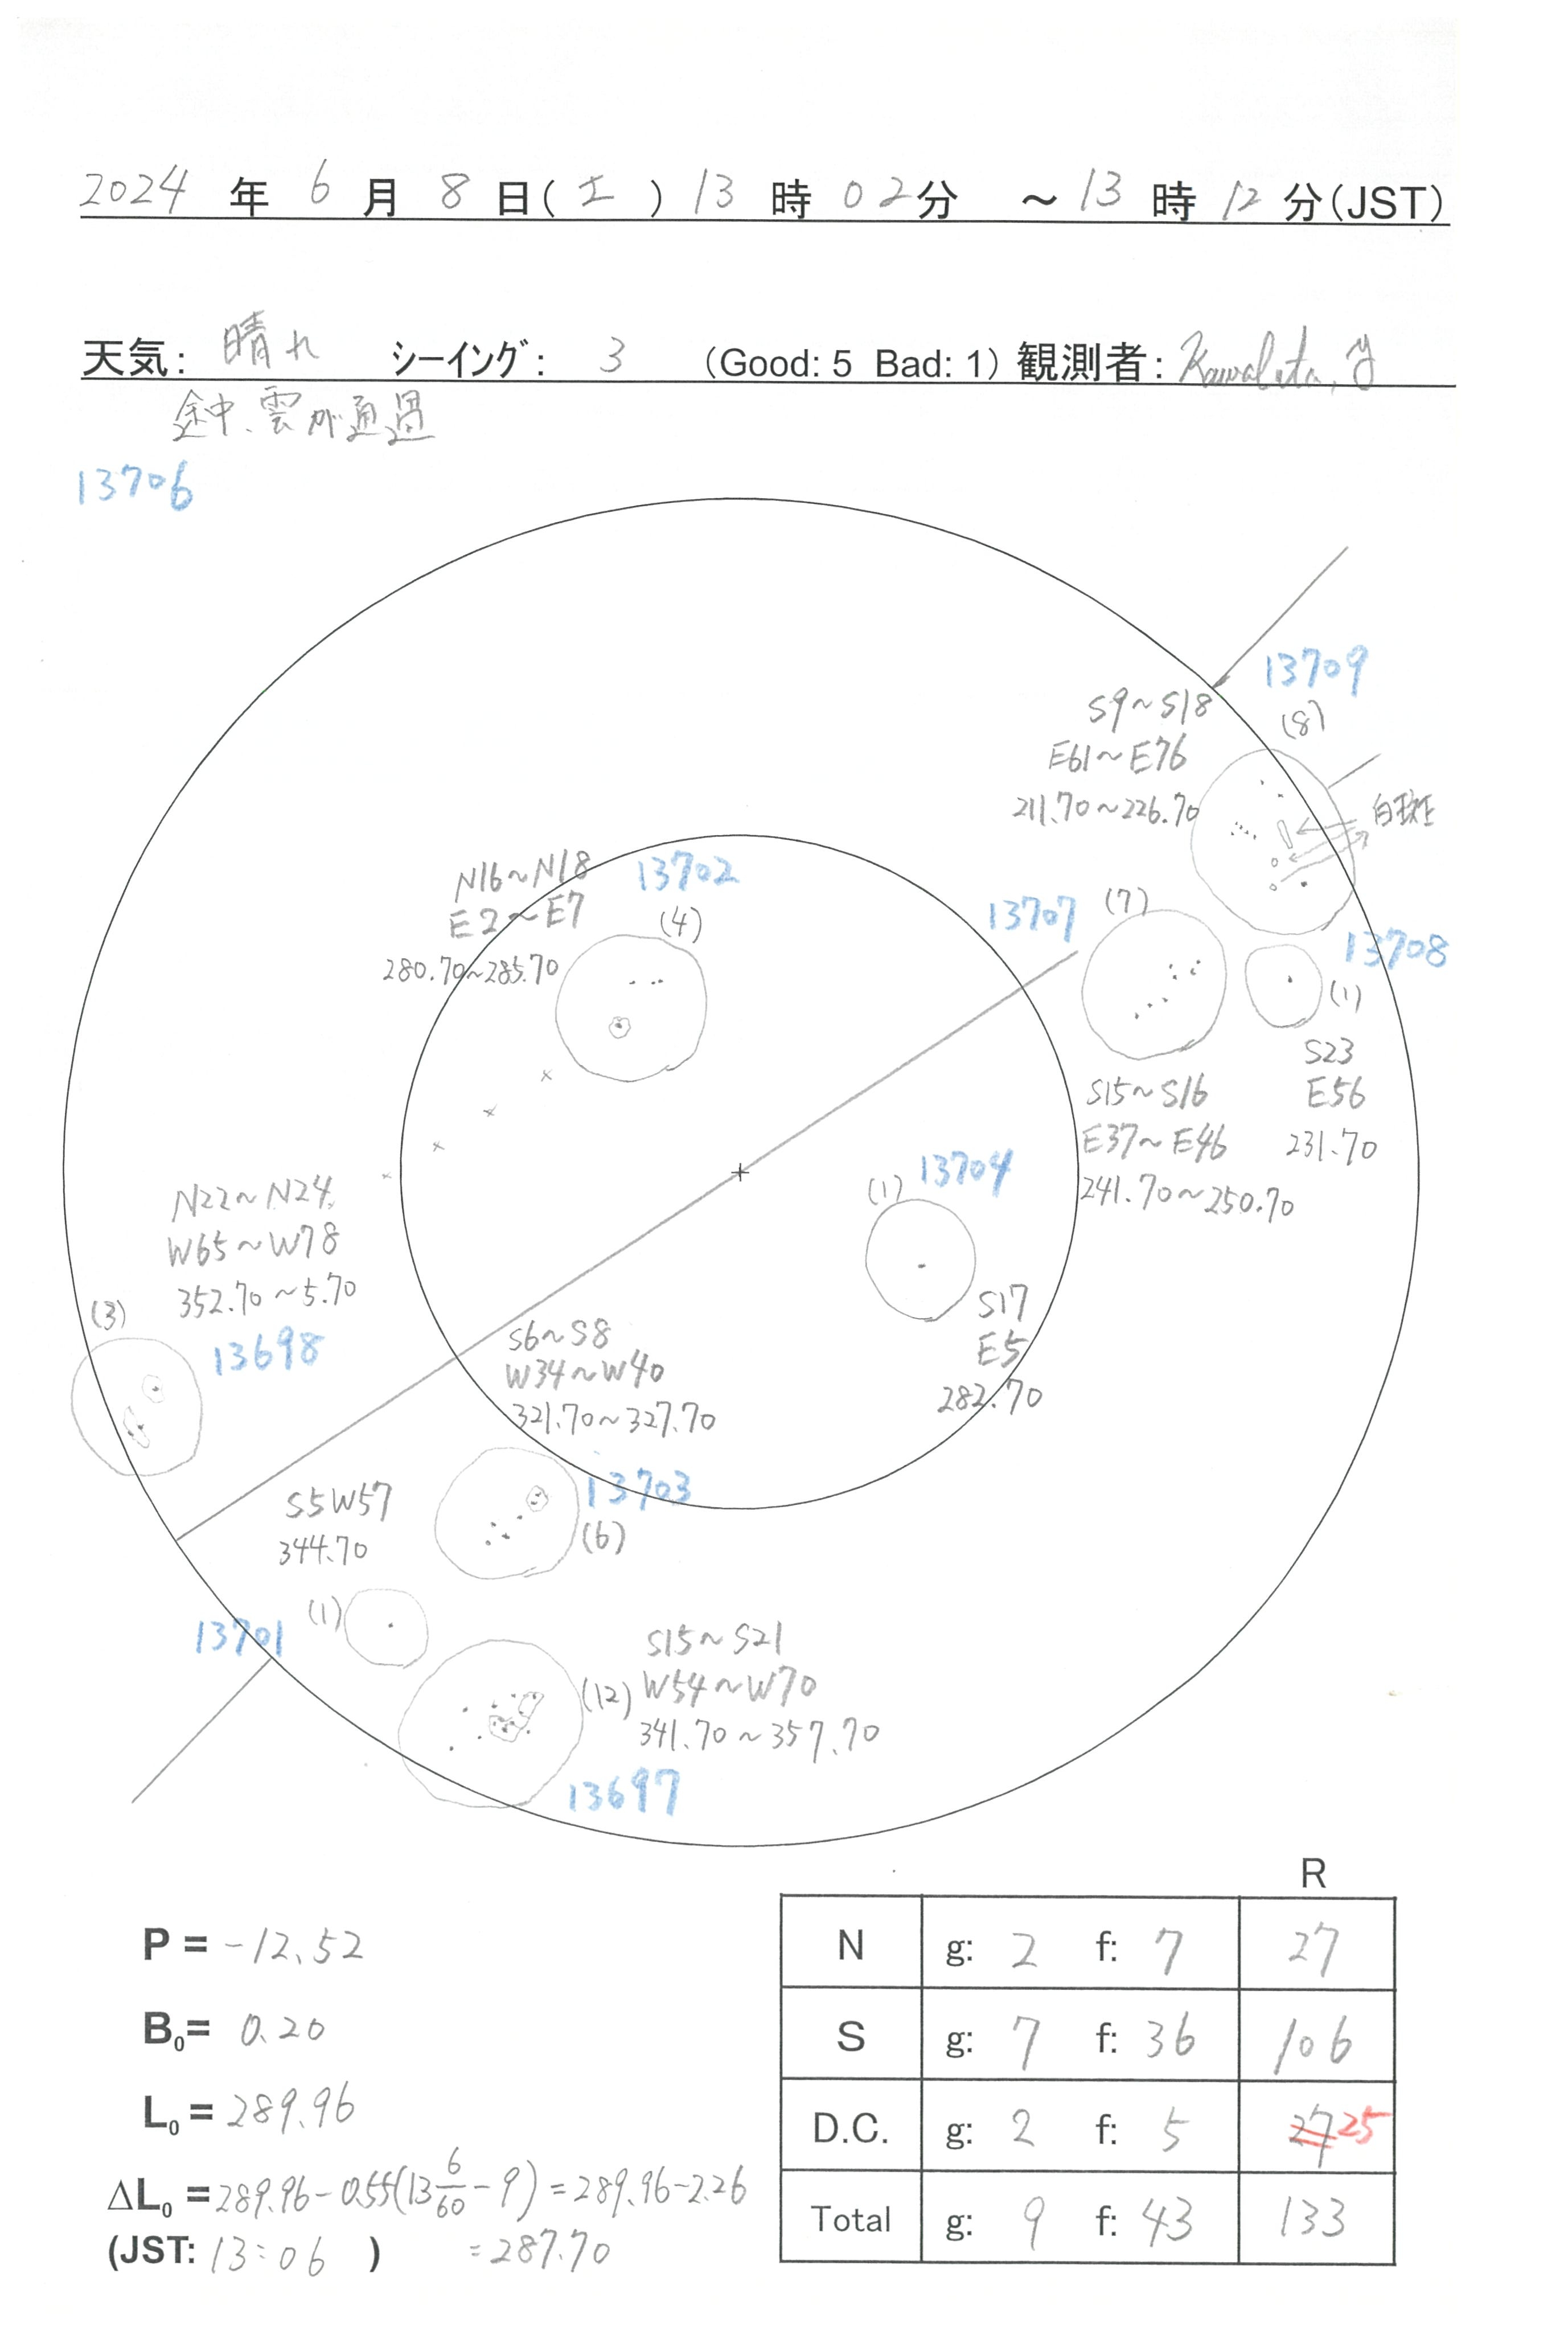 2024 年 6 月 8 日(土) 13 時 02分 ～13 時 12 分(JST)
天気: 晴れ シーイング: 3 (Good: 5 Bad: 1) 観測者:
途中、雲が通過
13706
13709
(8)
S9～S18
E61～E76
211.70～226.70
白斑
13702
(4)
N16～N18
E2～E7
280.70～285.70
13707
(7)
S15～S16
E37～E46
241.70～250.70
13708
(1)
S23
E56
231.70
13704
(1)
S17
E5
282.70
N22～N24
W65～W78
352.70～5.70
(3)
13698
S6～S8
W34～W40
321.70～327.70
13703
(6)
S5W57
344.70
(1)
13701
S15～S21
W54～W70
341.70～357.70
(12)
13697
P = -12.52
B0= 0.20
L0 = 289.96
ΔL0 = 289.96-0.55(13 6/60 -9) = 289.96-2.26
(JST: 13:06 ) = 287.70
R
N g: 2 f: 7 27
S g: 7 f: 36 106
D.C. g: 2 f: 5 27 25
Total g: 9 f: 43 133